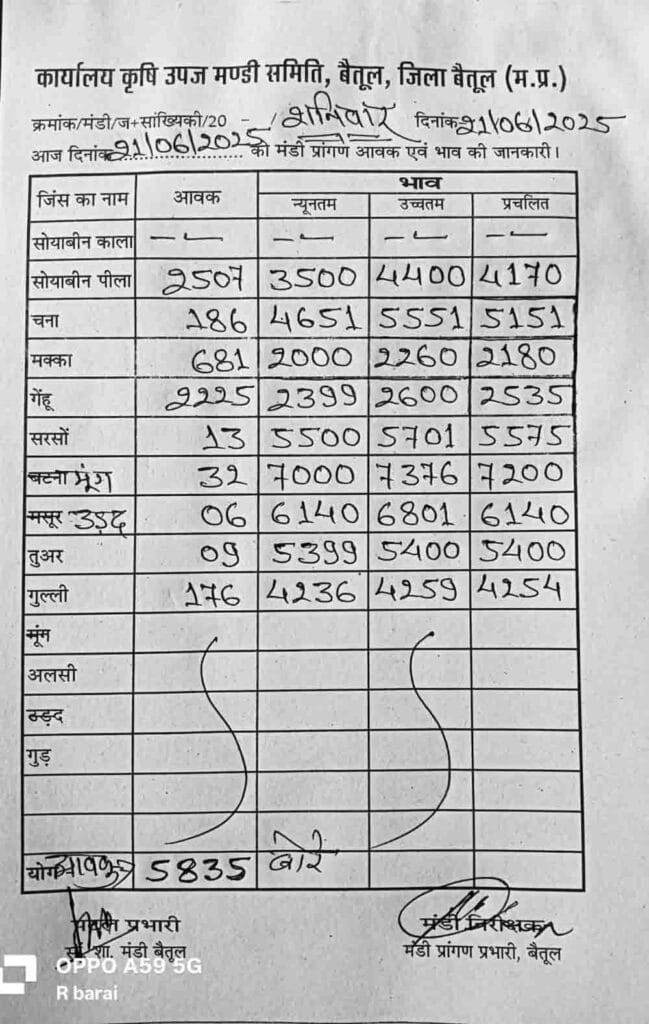 कार्यालय कृषि उपज मण्डी समिति, बैतूल, जिला बैतूल (म.प्र.)
क्रमांक/मंडी/ज+सांख्यिकी/20 - / शनिवार दिनांक 21/06/2025
आज दिनांक 21/06/2025 की मंडी प्रांगण आवक एवं भाव की जानकारी।
जिंस का नाम आवक भाव
न्यूनतम उच्चतम प्रचलित
सोयाबीन काला -"- -"- -"- -"-
सोयाबीन पीला 2507 3500 4400 4170
चना 186 4651 5551 5151
मक्का 681 2000 2260 2180
गेंहू 2225 2399 2600 2535
सरसों 13 5500 5701 5575
बटना मूंग 32 7000 7376 7200
मसूर उड़द 06 6140 6801 6140
तुअर 09 5399 5400 5400
गुल्ली 176 4236 4259 4254
मूंग
अलसी
उड़द
गुड़
योग आवक 5835 बोरे
प्रभारी मंडी निरीक्षक
स. शा. मंडी बैतूल मंडी प्रांगण प्रभारी, बैतूल
OPPO A59 5G
R barai